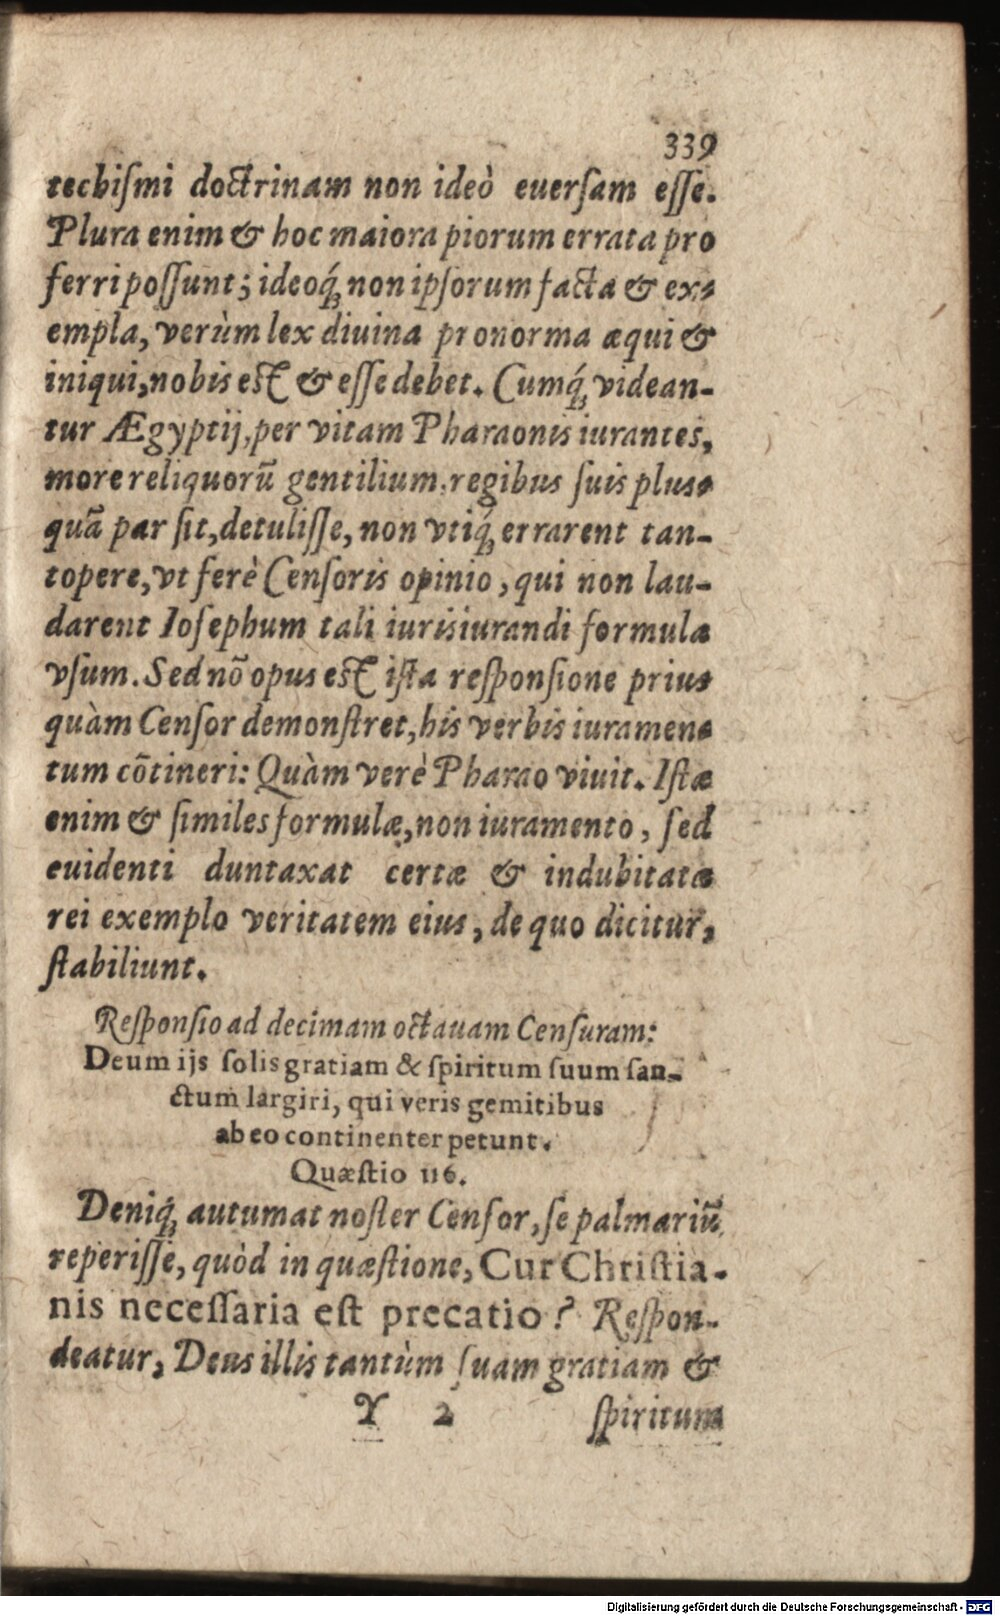 339
techiſmi doctrinam non ideò euerſam eſſe.
Plura enim & hoc maiora piorum errata pro
ferri poſſunt; ideoq́ꝫ non ipſorum facta & ex-
empla, verùm lex diuina pro norma æqui &
iniqui, nobis eſt & eſſe debet. Cumq́ꝫ videan-
tur Ægyptij, per vitam Pharaonis iurantes,
more reliquorũ gentilium, regibus ſuis plus-
quã par ſit, detuliſſe, non vtiq́ꝫ errarent tan-
topere, vt ferè Cenſoris opinio, qui non lau-
darent Ioſephum tali iurisiurandi formula
vſum. Sed nõ opus eſt iſta reſponſione prius
quàm Cenſor demonſtret, his verbis iuramen-
tum cõtineri: Quàm verè Pharao viuit. Iſtæ
enim & ſimiles formulæ, non iuramento, ſed
euidenti duntaxat certæ & indubitatæ
rei exemplo veritatem eius, de quo dicitur,
ſtabiliunt.
Reſponſio ad decimam octauam Cenſuram:
Deum ijs ſolis gratiam & ſpiritum ſuum ſan-
ctum largiri, qui veris gemitibus
ab eo continenter petunt.
Quæſtio 116.
Deniq́ꝫ autumat noſter Cenſor, ſe palmariũ
reperiſſe, quòd in quæſtione, Cur Chriſtia-
nis neceſſaria eſt precatio? Reſpon-
deatur, Deus illis tantùm ſuam gratiam &
Y 2 ſpiritum
Digitalisierung gefördert durch die Deutsche Forschungsgemeinschaft - DFG